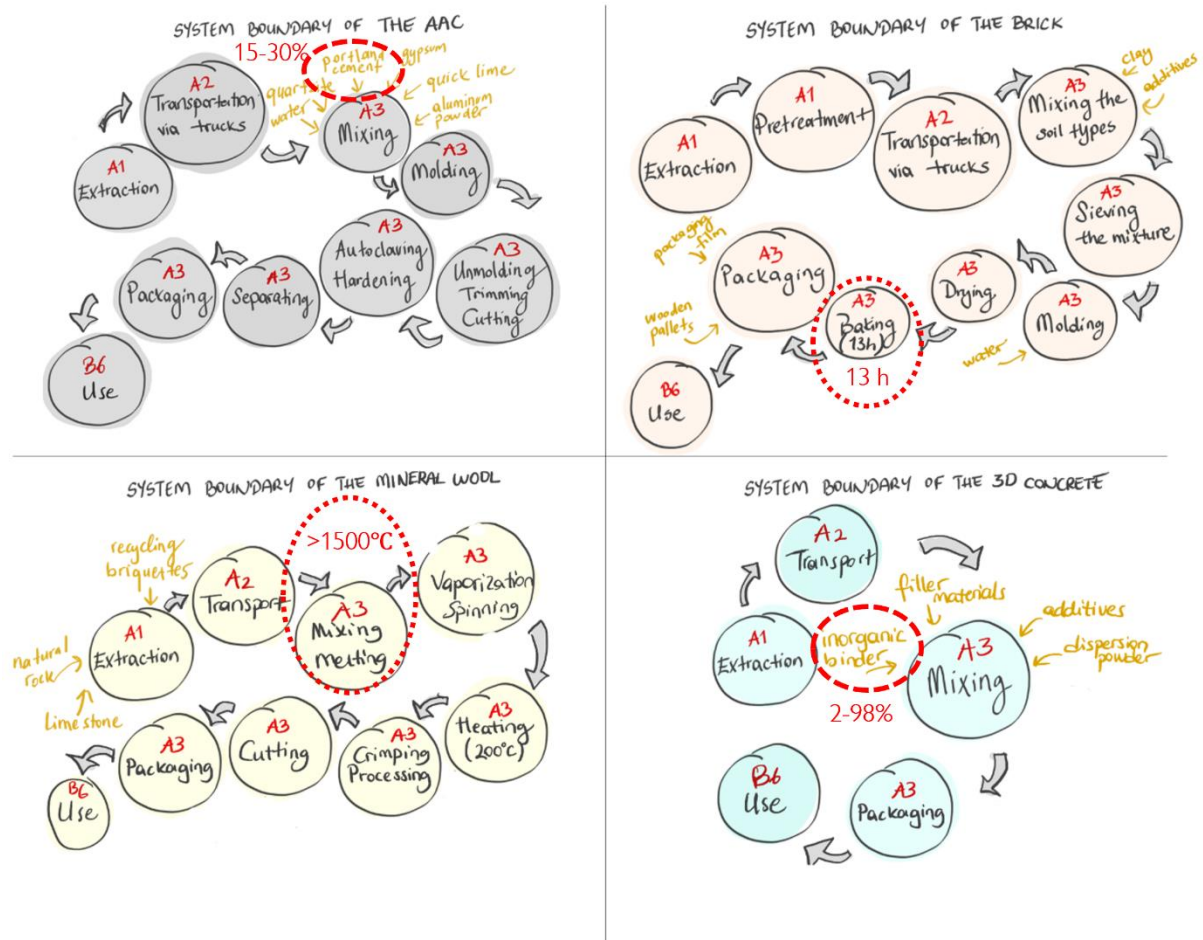 SYSTEM BOUNDARY OF THE AAC
15-30%
portland
cement
gypsum
quartsite
water
quick lime
aluminum
powder
A1
Extraction
A2
Transportation
via trucks
A3
Mixing
A3
Molding
A3
Unmolding
Trimming
Cutting
A3
Autoclaving
Hardening
A3
Separating
A3
Packaging
B6
Use
SYSTEM BOUNDARY OF THE BRICK
A1
Extraction
A1
Pretreatment
A2
Transportation
via trucks
clay
additives
A3
Mixing the
soil types
A3
Sieving
the mixture
A3
Molding
water
A3
Drying
A3
Baking
(13h)
13 h
packaging
film
A3
Packaging
wooden
pallets
B6
Use
SYSTEM BOUNDARY OF THE MINERAL WOOL
recycling
briquettes
natural
rock
limestone
A1
Extraction
A2
Transport
>1500°C
A3
Mixing
melting
A3
Vaporization
Spinning
A3
Heating
(200°C)
A3
Crimping
Processing
A3
Cutting
A3
Packaging
B6
Use
SYSTEM BOUNDARY OF THE 3D CONCRETE
A1
Extraction
A2
Transport
inorganic
binder
2-98%
filler
materials
additives
dispersion
powder
A3
Mixing
A3
Packaging
B6
Use